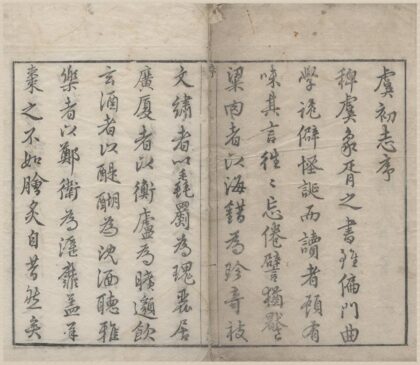 虞初志序
稗虞象胥之書雖偏門曲
學詭僻怪誕而讀者顧有
味其言往〻忘倦譬猶饜
梁肉者以海錯為珍奇被
序
文繡者以毳罽為瑰居
廣厦者以衡廬為曠邈飲
玄酒者以醍醐為沈湎聽雅
樂者以鄭衛為淫靡蓋羊
棗之不如膾炙自昔然矣